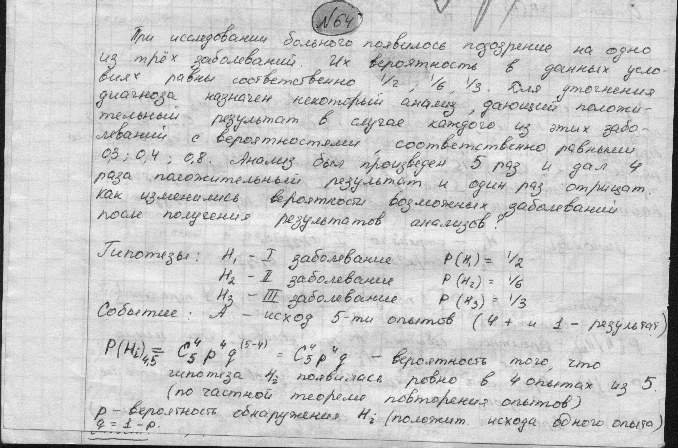 №64
При исследовании больного появилось подозрение на одно
из трёх заболеваний. Их вероятность в данных усло-
виях равны соответственно 1/2, 1/6, 1/3. Для уточнения
диагноза назначен некоторый анализ, дающий положи-
тельный результат в случае каждого из этих забо-
леваний с вероятностями, соответственно равными
0,3; 0,4; 0,8. Анализ был произведен 5 раз и дал 4
раза положительный результат и один раз отрицат.
Как изменились вероятности возможных заболеваний
после получения результатов анализов?
Гипотезы: H₁ - I заболевание P(H₁) = 1/2
H₂ - II заболевание P(H₂) = 1/6
H₃ - III заболевание P(H₃) = 1/3
Событие: A - исход 5-ти опытов (4+ и 1- результат)
P(Hᵢ)₄,₅ = C₅⁴ p⁴ q⁽⁵⁻⁴⁾ = C₅⁴ p⁴ q - вероятность того, что
гипотеза Hᵢ появилась ровно в 4 опытах из 5.
(по частной теореме повторения опытов)
p - вероятность обнаружения Hᵢ (положит. исхода одного опыта)
q = 1 - p.